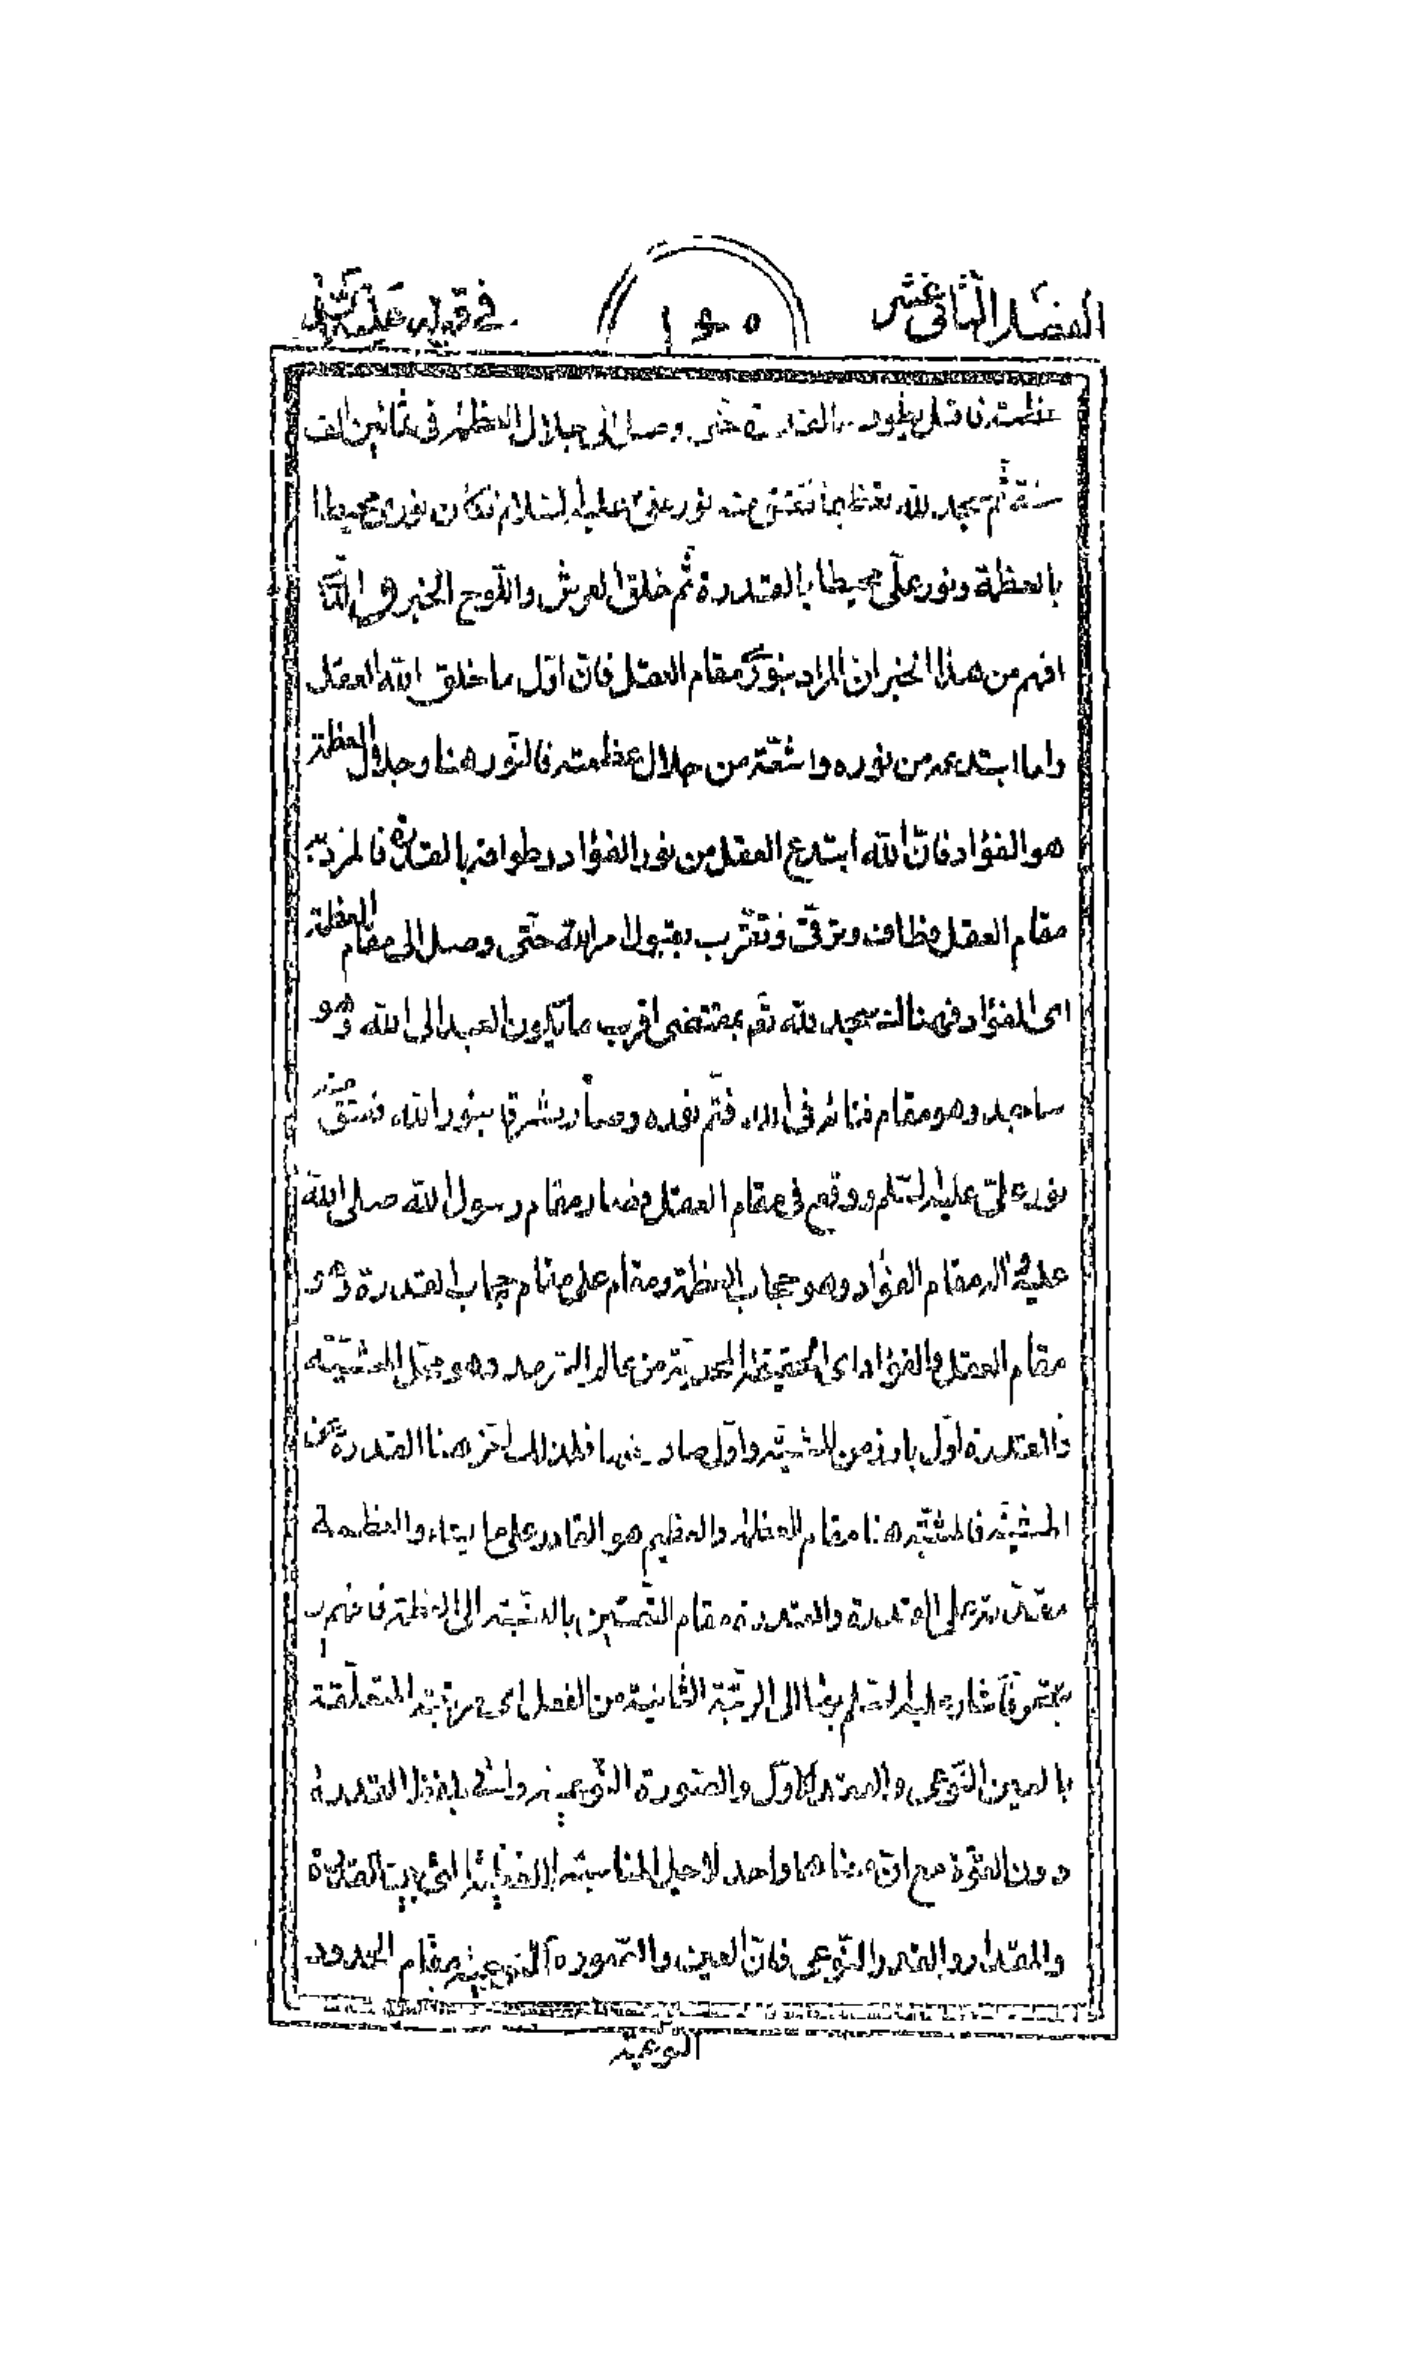 الفصل الثانی عشر
۱۴۰
فی قوله علیه السلام
عظمته فاقبل یطوف بالقدرة حتی وصل الی جلال العظمة فی ثمانین الف
سنة ثم سجد لله تعظیما ففتق منه نور علی علیه السلام فکان نوری محیطا
بالعظمة ونور علی محیطا بالقدرة ثم خلق العرش واللوح الخبر
افهم من هذا الخبر ان المراد بنوری مقام العقل فان اول ما خلق الله العقل
واما ابتدعه من نوره واشتقه من جلال عظمته فالنور هنا وجلال العظمة
هو الفؤاد فان الله ابتدع العقل من نور الفؤاد وطوافه بالقدرة
مقام العقل فطاف وترقی وتقرب بقبول امر الله حتی وصل الی مقام العظمة
ای الفؤاد فهنالک سجد لله ثم بمقتضی اقرب ما یکون العبد الی الله وهو
ساجد وهو مقام فنائه فی الله فتم نوره وصار یشرق بنور الله ففتق منه
نور علی علیه السلم ووقع فی مقام العقل فصار مقام رسول الله صلی الله
علیه واله مقام الفؤاد وهو حجاب العظمة ومقام علی مقام حجاب القدرة وهو
مقام العقل والفؤاد ای الحقیقة المحمدیة من عالم السرمد وهو محل المشیة
والقدرة اول بارز من المشیة واول صادر منها فلذلک اخر هنا القدرة عن
المشیة فالمشیة هنا مقام العظمة والعظیم هو القادر علی ما یشاء والعظمة
مقدمة علی القدرة والقدرة مقام التعین بالنسبة الی العظمة فافهم
فاشار علیه السلم بها الی الرتبة الثانیة من الفعل ای مرتبته المتعلقة
بالعین النوعی والقدر الاول والصورة النوعیة واتی بلفظ القدرة
دون القوة مع ان معناهما واحد لاجل المناسبة اللفظیة التی بین القدرة
والمقدار والقدر النوعی فان العین والصورة النوعیة مقام الحدود
النوعیة